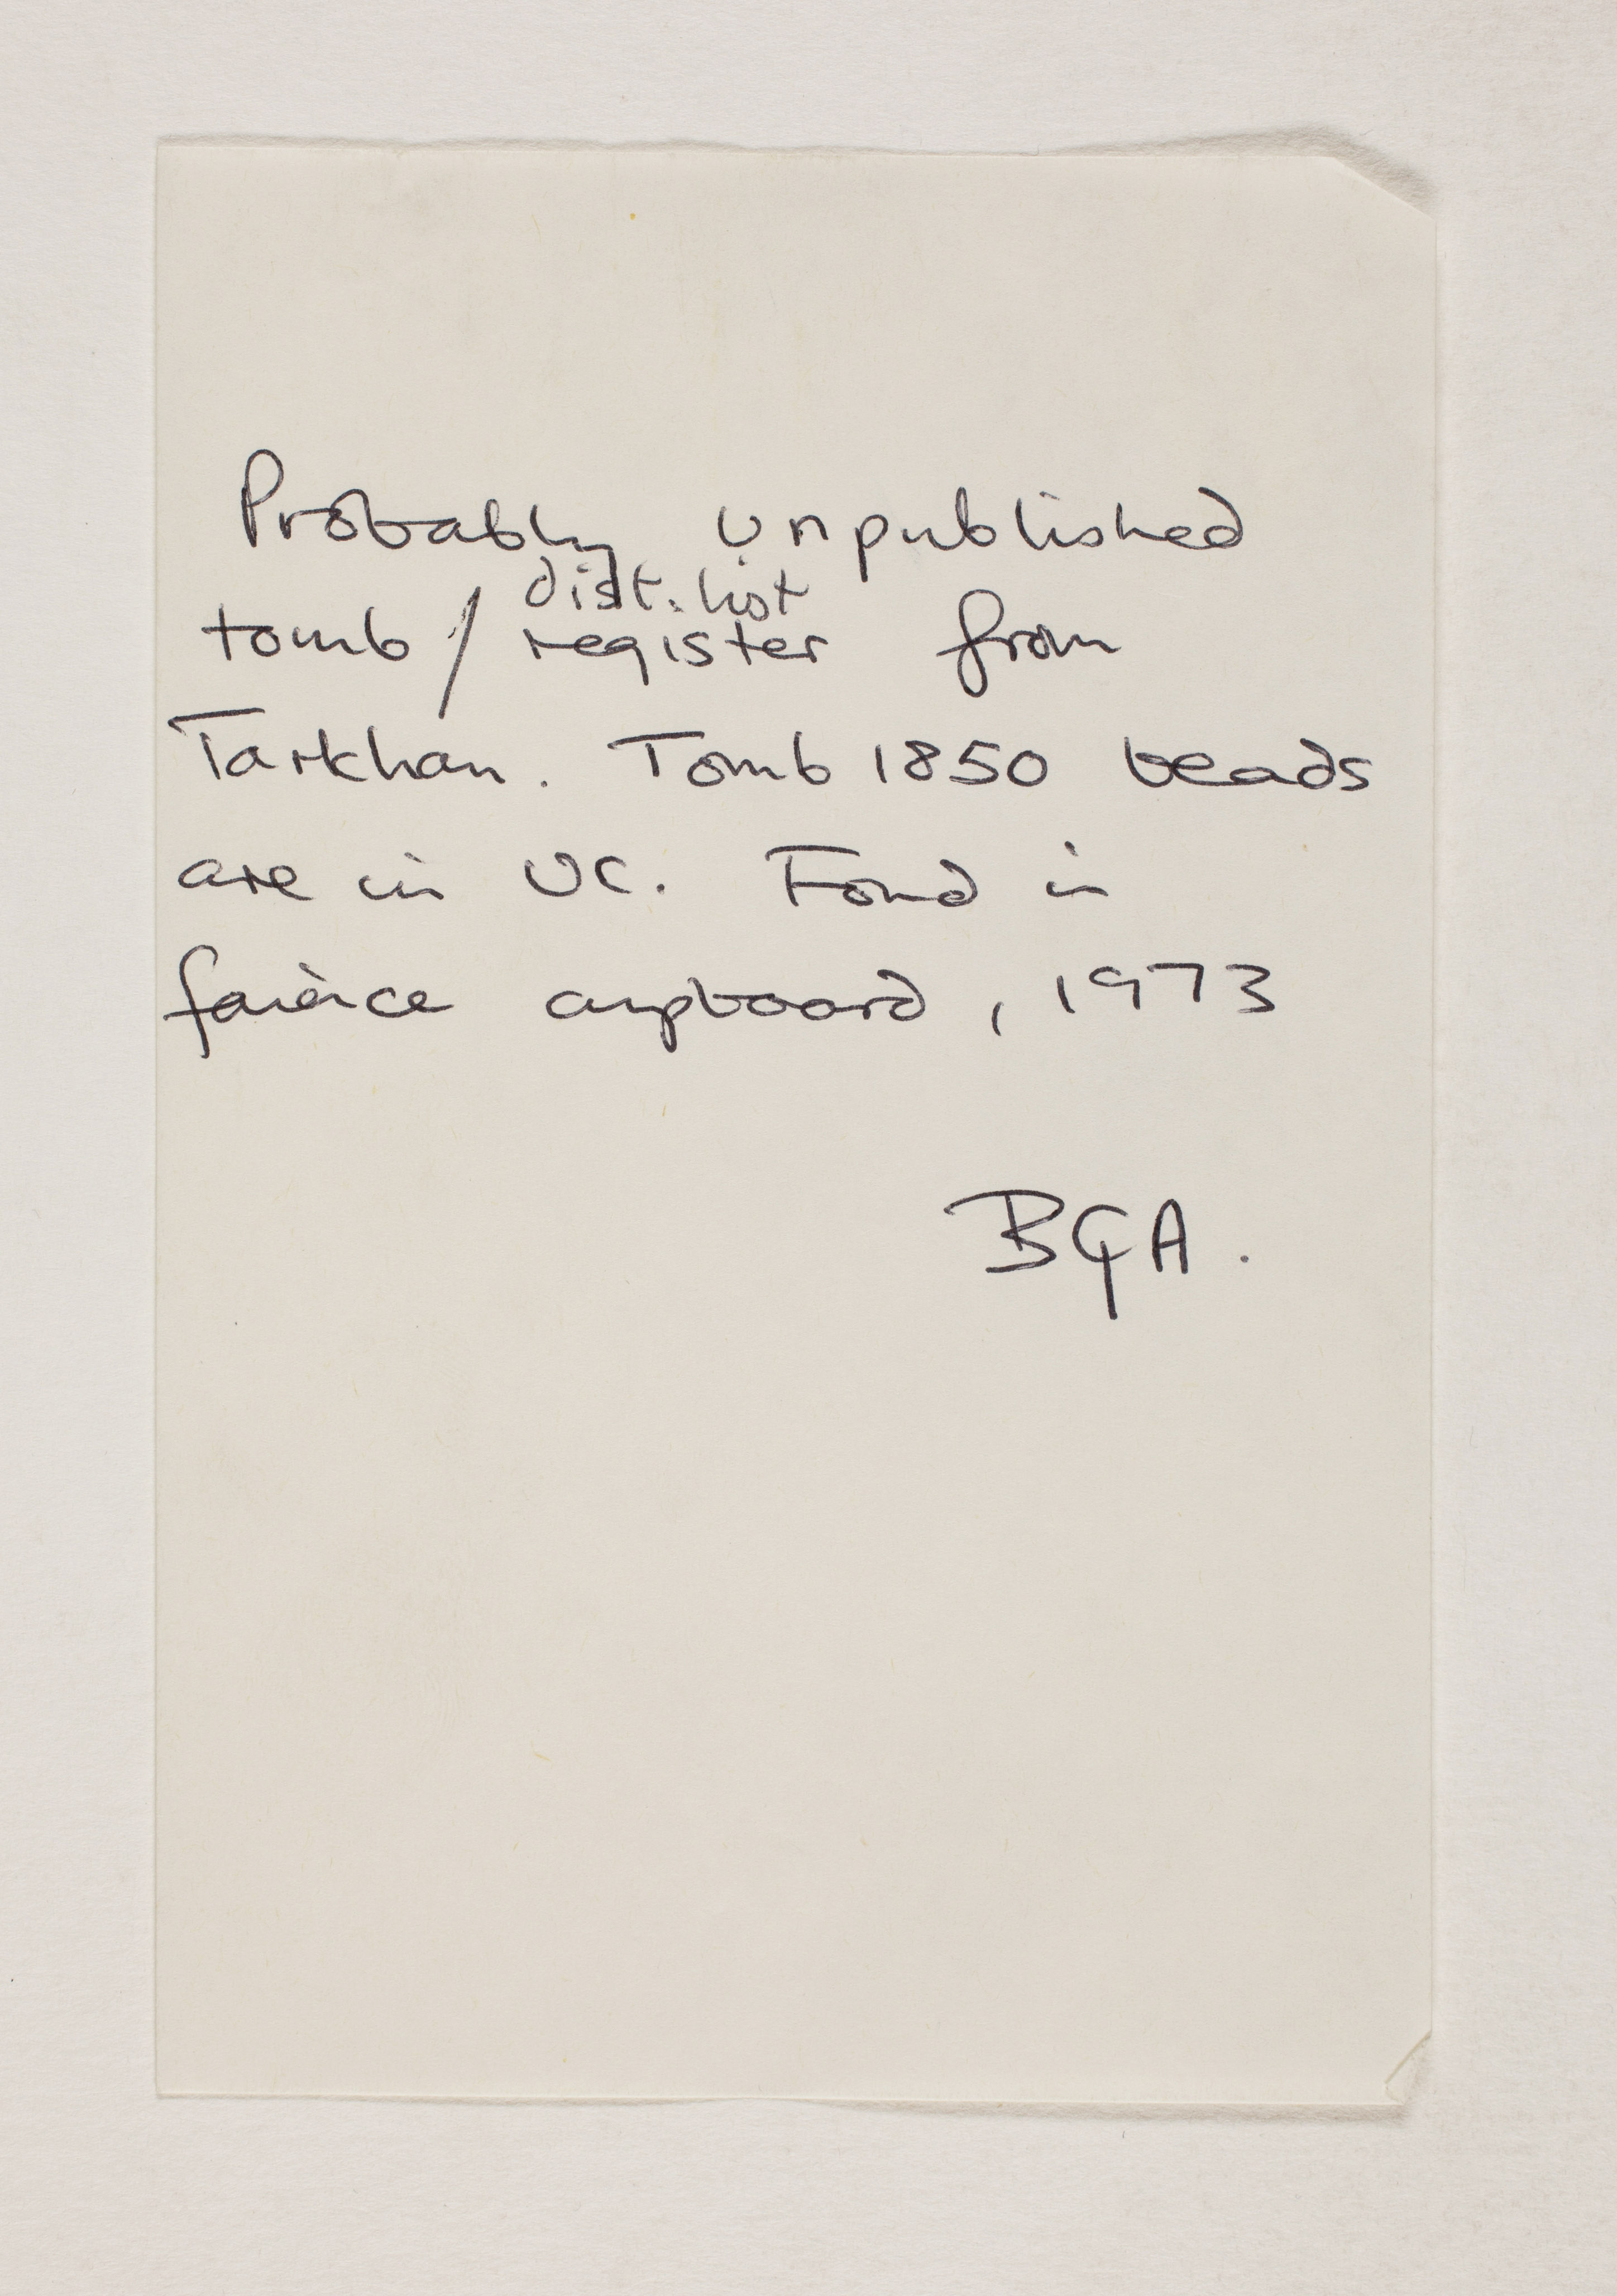 Probably unpublished
dist. list
tomb / register from
Tarkhan. Tomb 1850 beads
are in UC. Found in
faience cupboard, 1973
BGA.